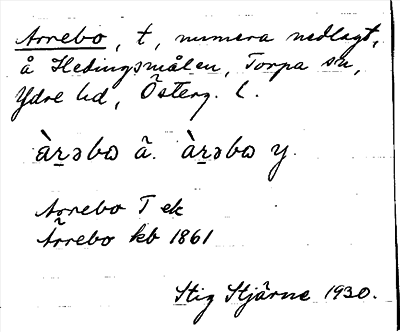 Arrebo, t, numera nedlagt,
å Hedingsmålen, Torpa sn,
Ydre hd, Österg. l.
àr̲əbω ã. àr̲əbω y.
Arrebo T ek
Arrebo kb 1861
Stig Stjärne 1930.